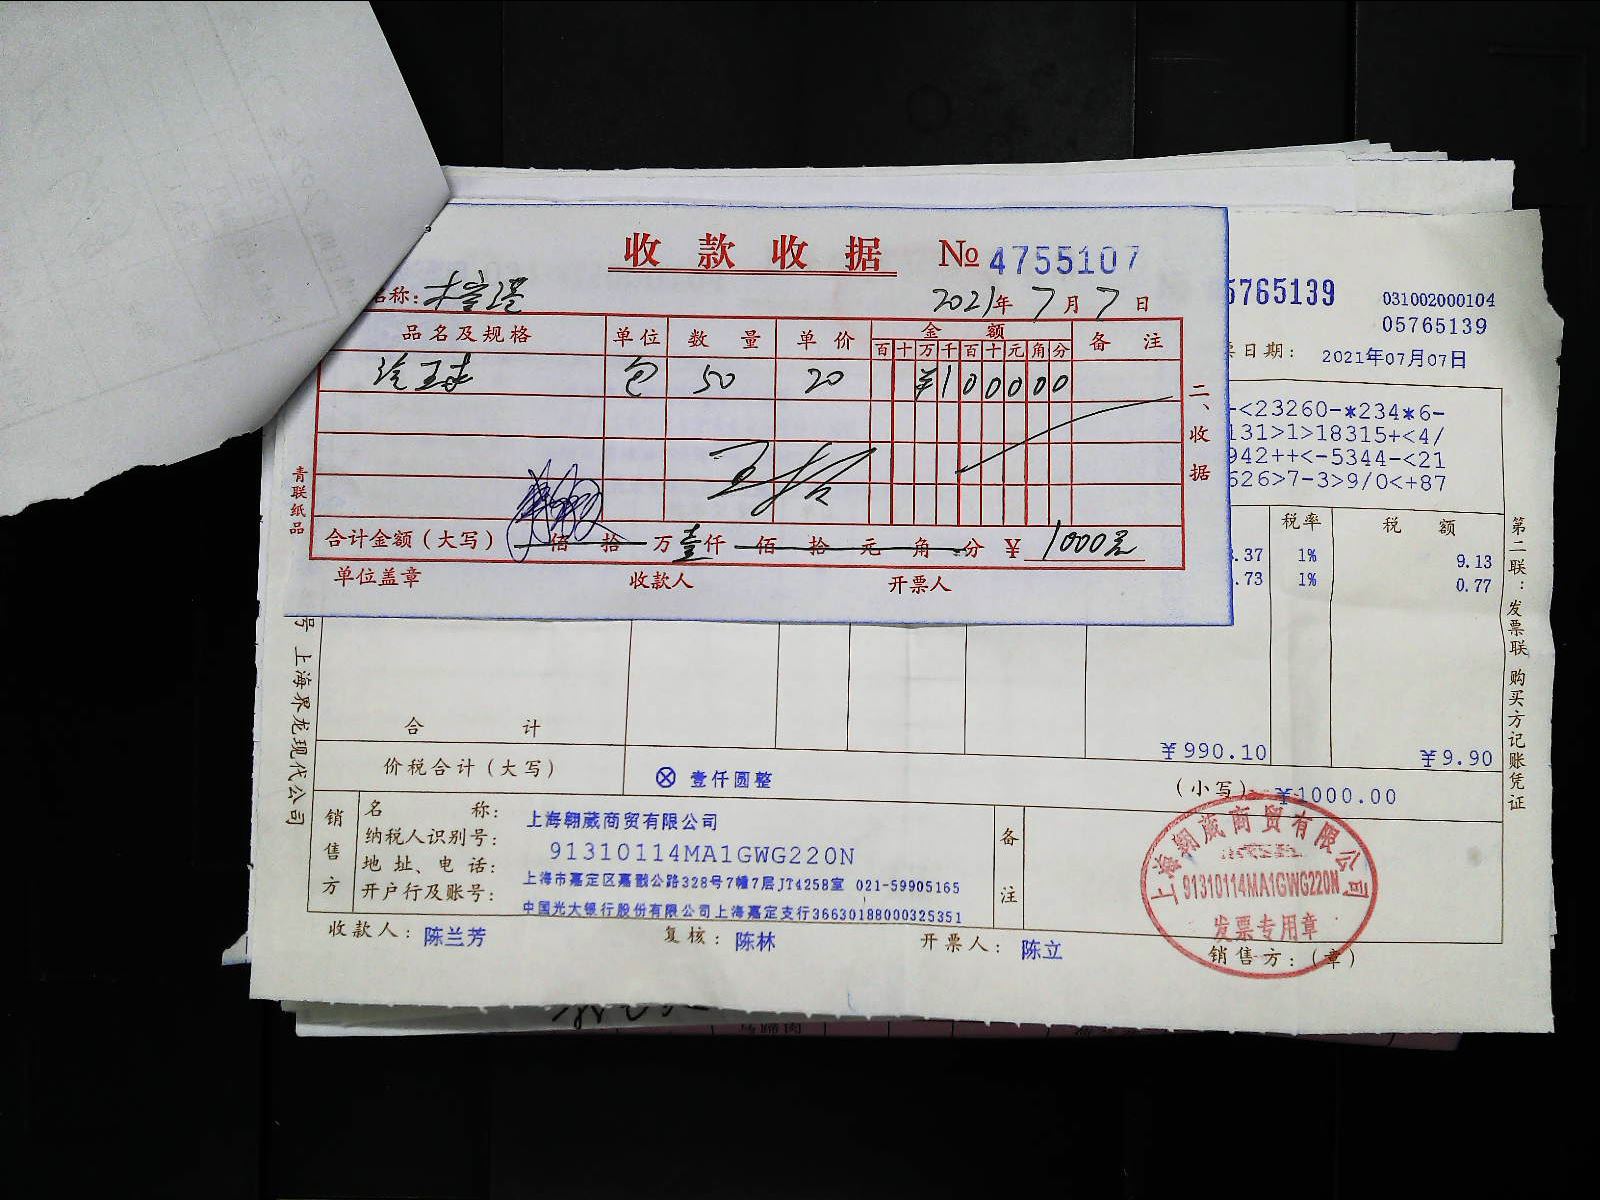 收款收据 № 4755107
名称:
2021年7月7日
品名及规格 单位 数量 单价 金额 备注
百十万千百十元角分
包 50 20 ¥100000
二、收据
青联纸品
合计金额(大写) 佰 拾 万 壹仟 佰 拾 元 角 分 ¥ 1000元
单位盖章 收款人 开票人
5765139
031002000104
05765139
票日期: 2021年07月07日
-<23260-*234*6-
131>1>18315+<4/
942++<-5344-<21
626>7-3>9/0<+87
税率 税额
.37 1% 9.13
.73 1% 0.77
第二联:发票联 购买方记账凭证
号 上海界龙现代公司
合计 ¥990.10 ¥9.90
价税合计(大写) ⊗ 壹仟圆整 (小写) ¥1000.00
销售方
名称: 上海翱葳商贸有限公司
纳税人识别号: 91310114MA1GWG220N
地址、电话: 上海市嘉定区嘉戬公路328号7幢7层JT4258室 021-59905165
开户行及账号: 中国光大银行股份有限公司上海嘉定支行36630188000325351
备注
上海翱葳商贸有限公司
91310114MA1GWG220N
发票专用章
收款人: 陈兰芳 复核: 陈林 开票人: 陈立 销售方:(章)